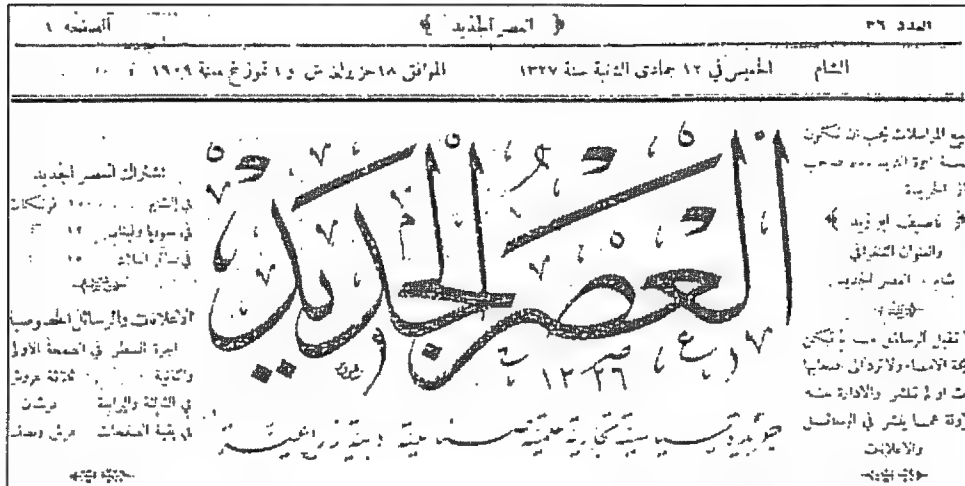 العدد ٣٦
﴿ العصر الجديد ﴾
الصفحه ١
الشام
الخميس في ١٢ جمادى الثانية سنة ١٣٢٧
الموافق ١٨ حزيران ش و ١ تموز غ سنة ١٩٠٩
المراسلات يجب ان تكون
اجرة البريد صاحب
الجريدة
﴿ ناصيف ابو زيد ﴾
والعنوان التلغرافي
شام . العصر الجديد
تقبل الرسائل لم تكن
الامضاء ولا ترد الى اصحابها
او لم تنشر والادارة
عما ينشر في الرسائل
والاعلانات
العصر الجديد
١٣٢٦
جريدة سياسية تجارية علمية صناعية ادبية زراعية
اشتراك العصر الجديد
في الشام
في سوريا ولبنان ١٢
في سائر البلاد ١٥
الاعلانات والرسائل الخصوصية
اجرة السطر في الصفحة الاولى
والثانية ثلاثة غروش
في الثالثة والرابعة غرشان
في بقية الصفحات غرش ونصف